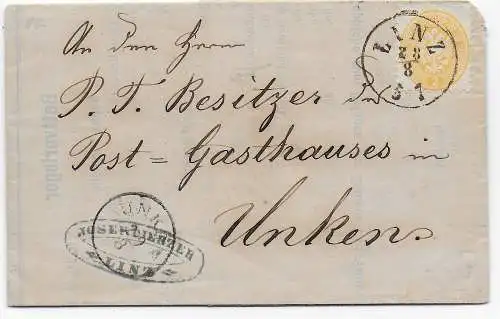 An den Herrn
P. T. Besitzer des
Post = Gasthauses in
Unken
LINZ
8
LINZ